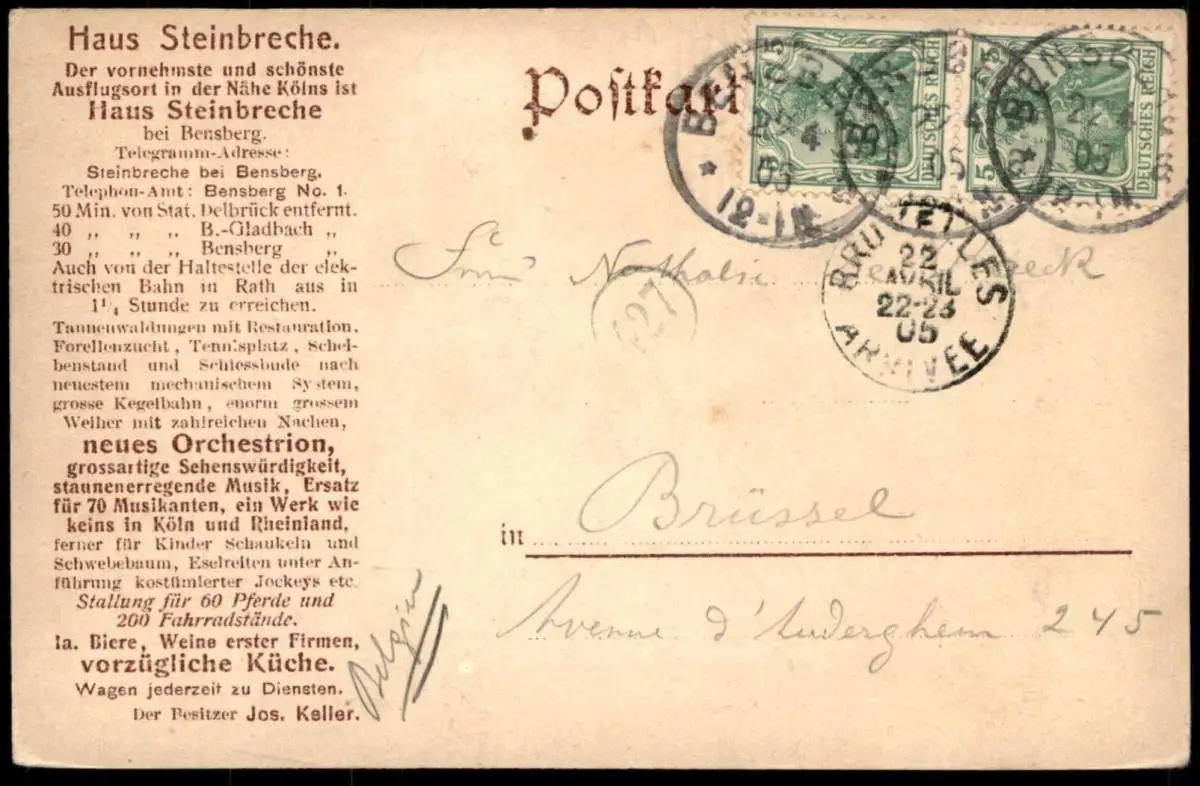 Haus Steinbreche.
Der vornehmste und schönste
Ausflugsort in der Nähe Kölns ist
Haus Steinbreche
bei Bensberg.
Telegramm-Adresse:
Steinbreche bei Bensberg.
Telephon-Amt: Bensberg No. 1.
50 Min. von Stat. Delbrück entfernt.
40 „ „ „ B.-Gladbach „
30 „ „ „ Bensberg „
Auch von der Haltestelle der elek-
trischen Bahn in Rath aus in
1¼ Stunde zu erreichen.
Tannenwaldungen mit Restauration.
Forellenzucht, Tennisplatz, Schei-
benstand und Schiessbude nach
neuestem mechanischem System,
grosse Kegelbahn, enorm grossem
Weiher mit zahlreichen Nachen,
neues Orchestrion,
grossartige Sehenswürdigkeit,
staunenerregende Musik, Ersatz
für 70 Musikanten, ein Werk wie
keins in Köln und Rheinland,
ferner für Kinder Schaukeln und
Schwebebaum, Eselreiten unter An-
führung kostümierter Jockeys etc.
Stallung für 60 Pferde und
200 Fahrradstände.
Ia. Biere, Weine erster Firmen,
vorzügliche Küche.
Wagen jederzeit zu Diensten.
Der Besitzer Jos. Keller.
Belgien
Postkart
DEUTSCHES REICH
5
DEUTSCHES REICH
5
22 4
05
12-1N
BRUXELLES
22
AVRIL
22-23
05
ARRIVEE
427
in Brüssel
Avenue d'Auderghem 245